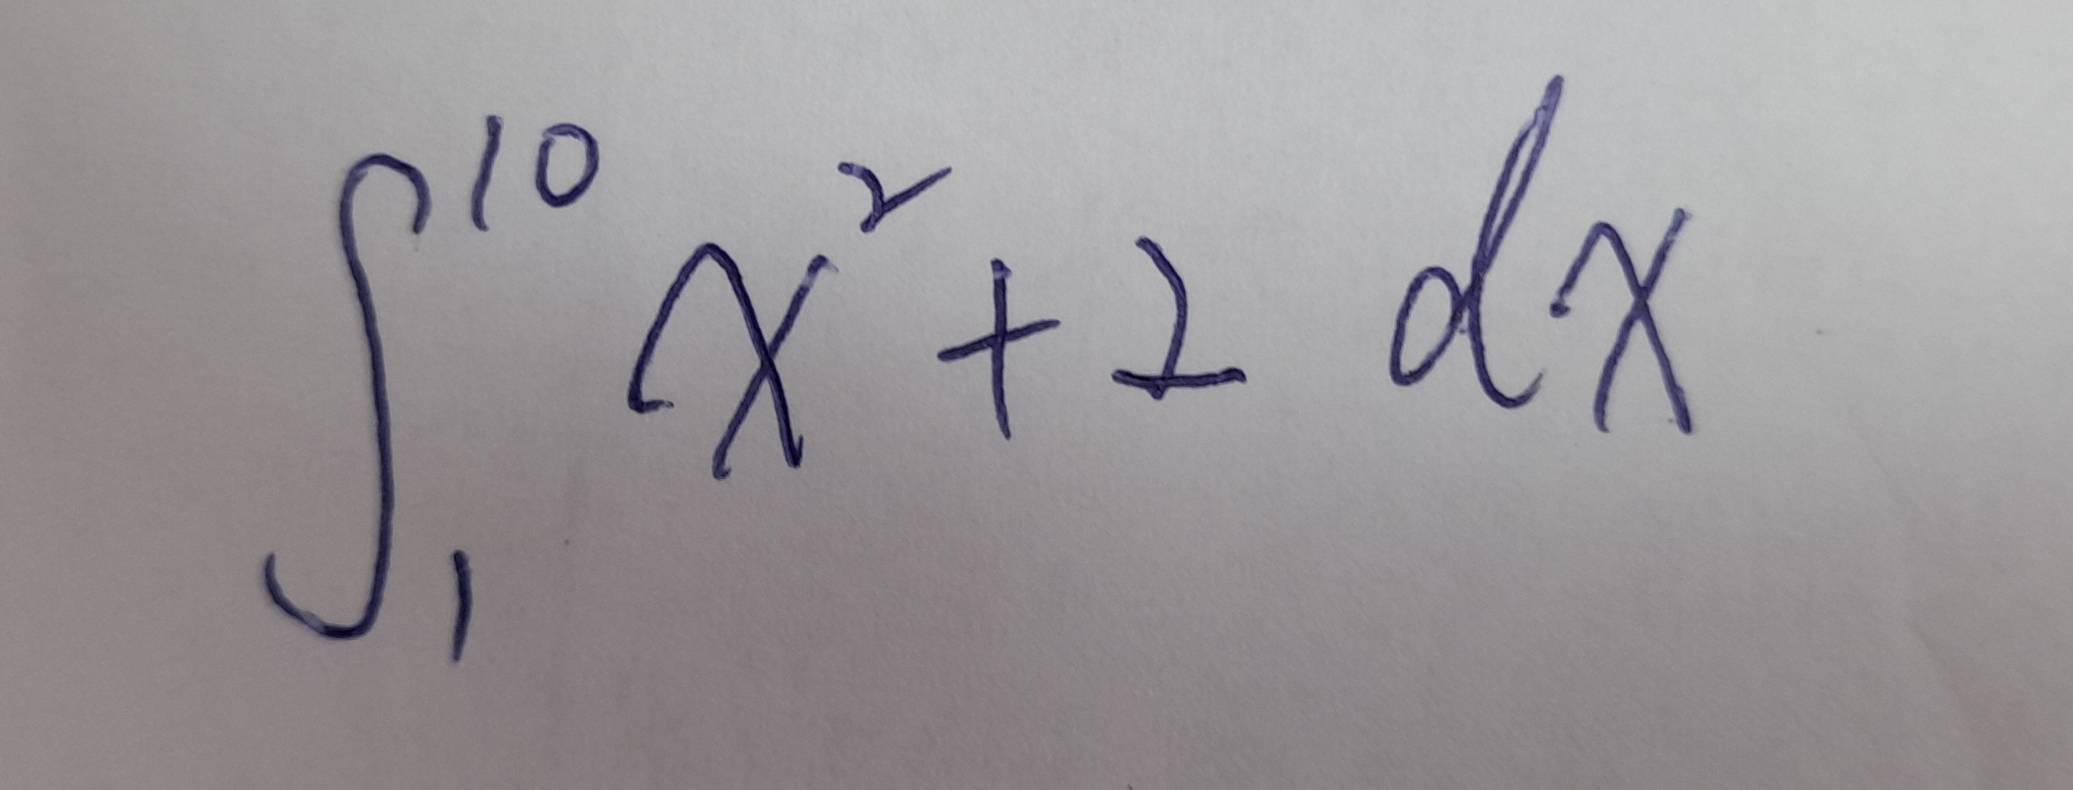 ∫₁¹⁰ x² + 2 dx